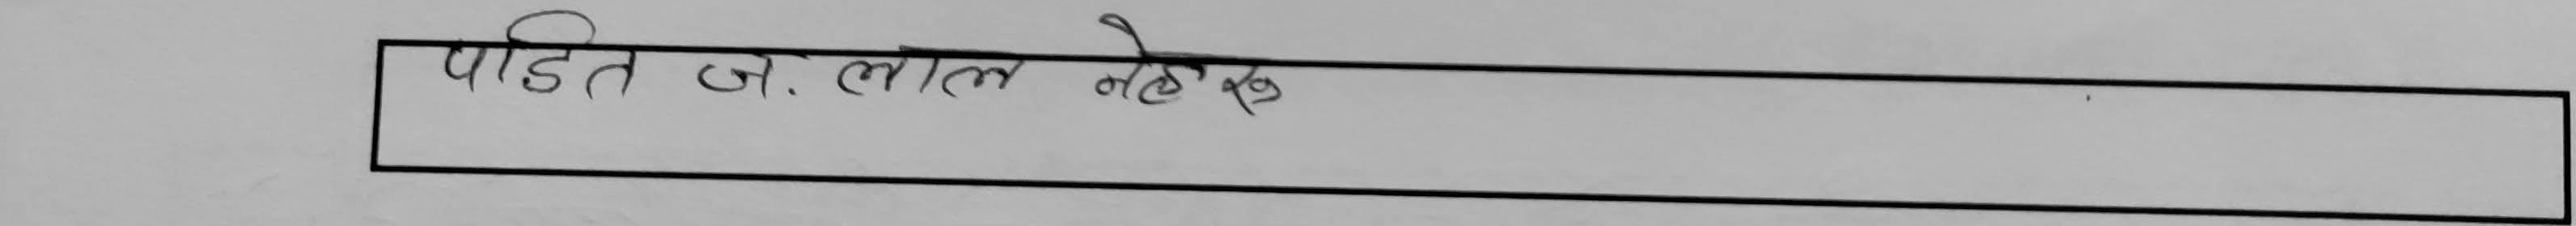 पडित ज. लाल नेहरु